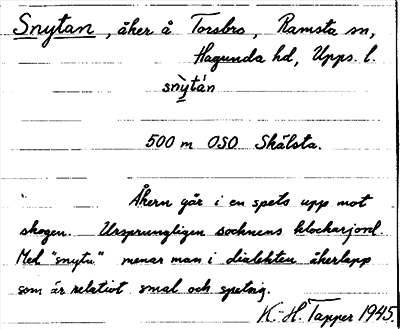 Snytan, åker å Torsbro, Ramsta sn,
Hagunda hd, Upps. l.
snỳtán
500 m OSO Skälsta.
Åkern går i en spets upp mot
skogen. Ursprungligen socknens klockarjord.
Med "snytu" menar man i dialekten åkerlapp
som är relativt smal och spetsig.
K.-H. Tapper 1945.